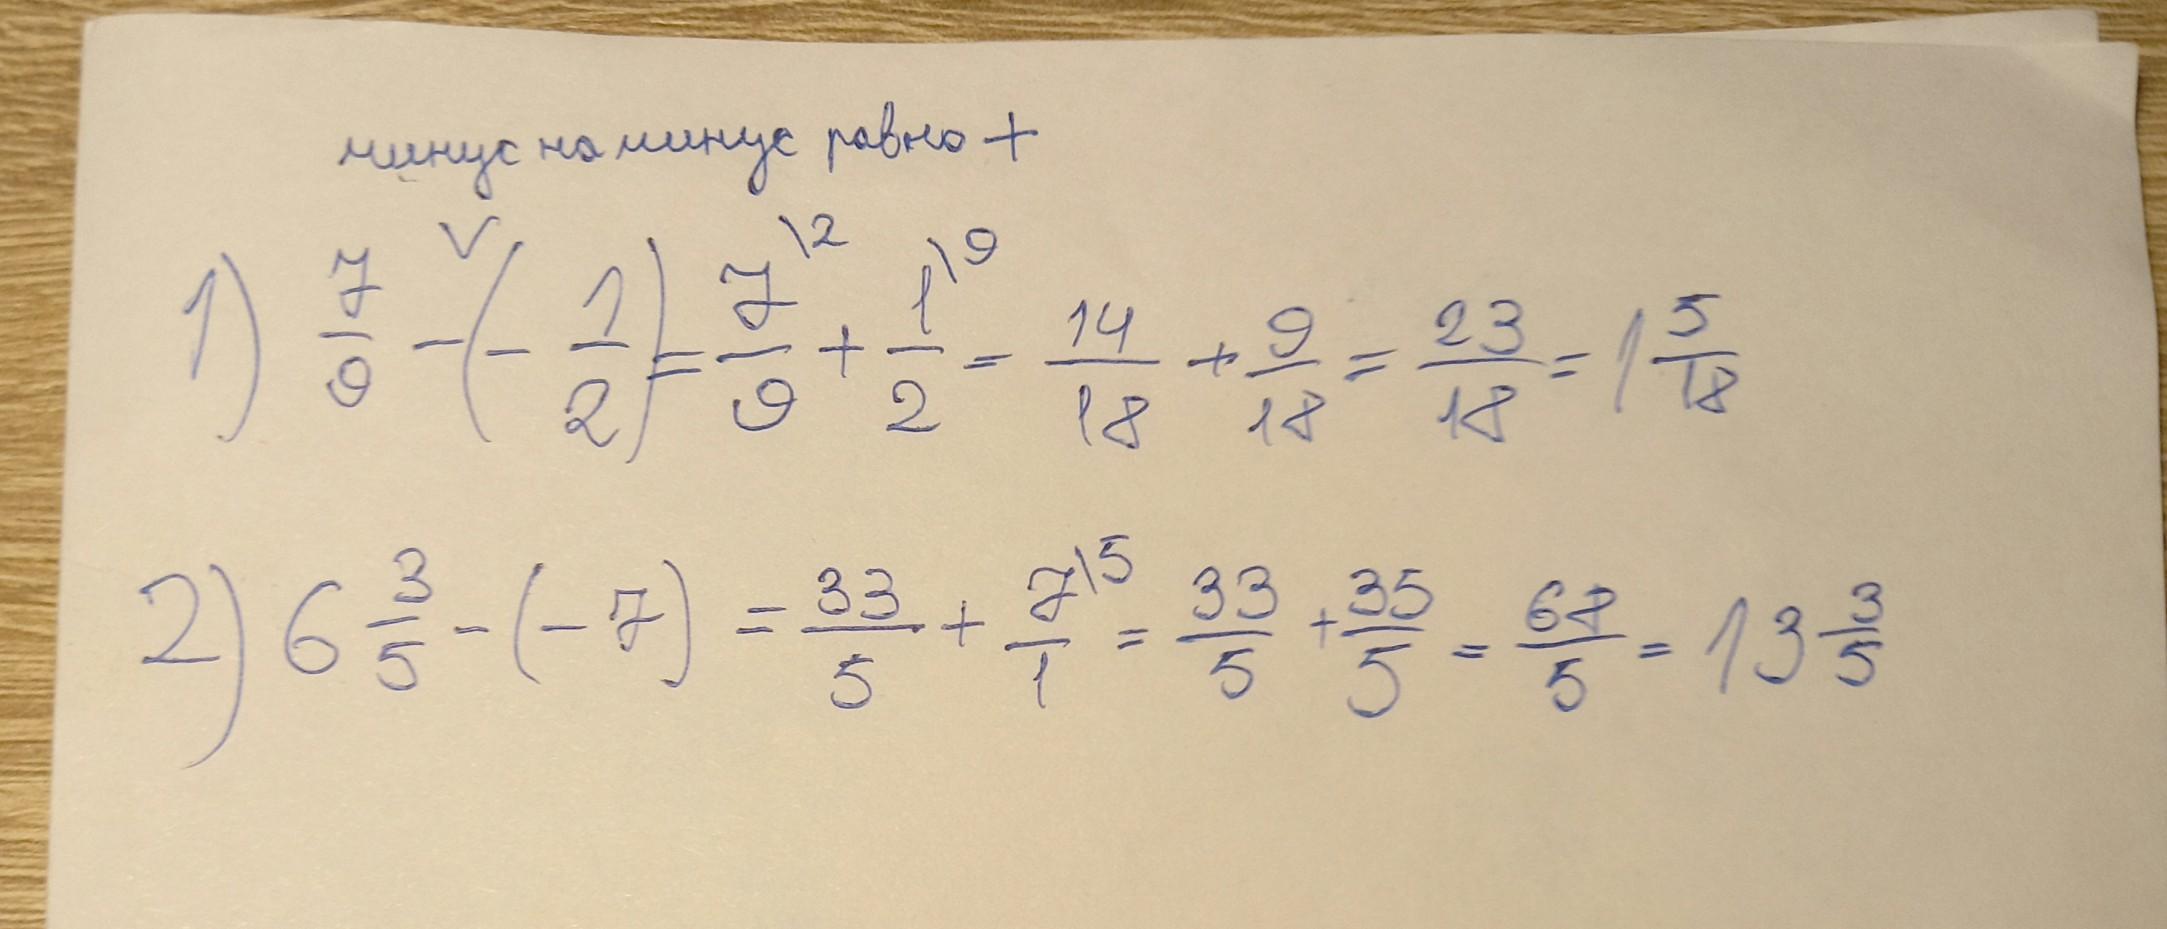 минус на минус равно +
1) 7/9 - (- 1/2) = 7/9 \2 + 1/2 \9 = 14/18 + 9/18 = 23/18 = 1 5/18
2) 6 3/5 - (- 7) = 33/5 + 7/1 \5 = 33/5 + 35/5 = 68/5 = 13 3/5